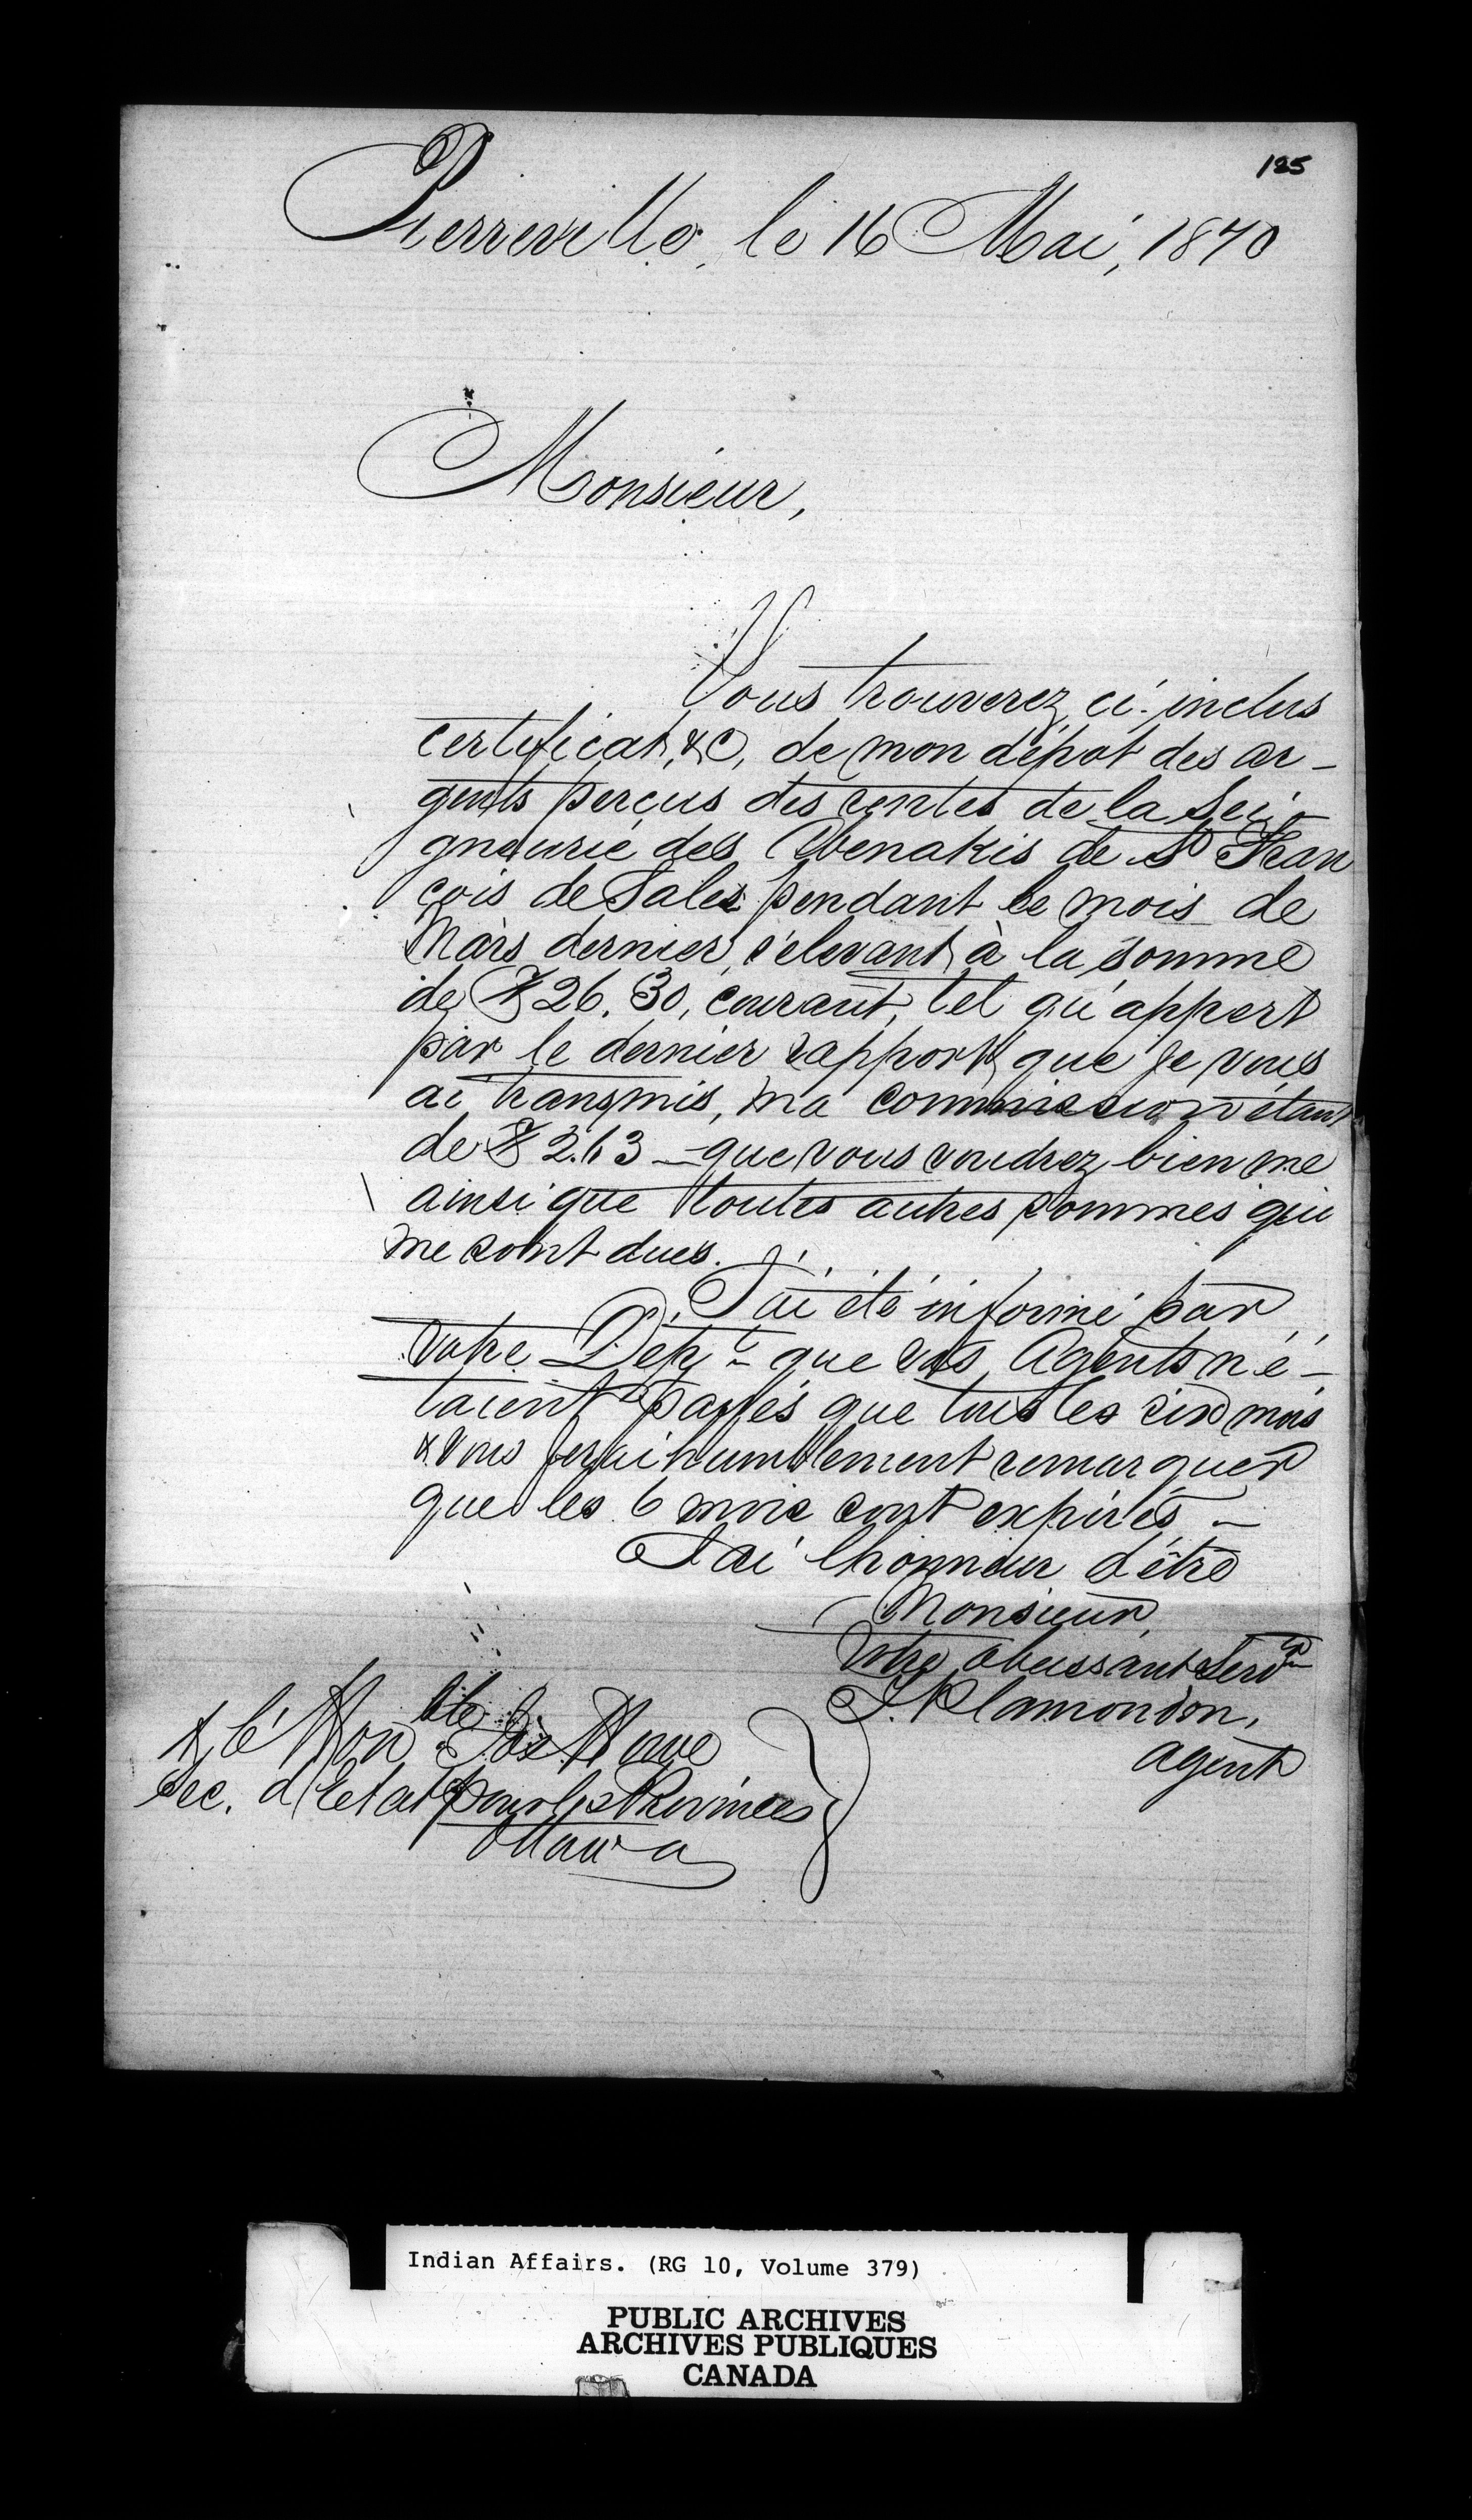 125
Pierreville, le 16 Mai, 1870
Monsieur,
Vous trouverez ci-inclus
certificat, &c, de mon dépot des ar-
gents perçus des rentes de la Sei-
gneurie des Abenakis de St Fran
çois de Sales pendant le mois de
Mars dernier, s'elevant à la somme
de $26.30, courant, tel qu'appert
par le dernier rapport que je vous
ai transmis, ma commission étant
de $2.63 - que vous voudrez bien me
ainsi que toutes autres sommes qui
me sont dues.
J'ai été informé par
votre Dépt que vos Agents n'é-
taient payés que tous les six mois
& vous ferai humblement remarquer
que les 6 mois sont expirés -
J'ai l'honneur d'être
Monsieur,
Votre obeissant Servr
J. Plamondon,
agent
A l'Honble Jos Howe
Sec. d'Etat pour les Provinces
Ottawa
Indian Affairs. (RG 10, Volume 379)
PUBLIC ARCHIVES
ARCHIVES PUBLIQUES
CANADA